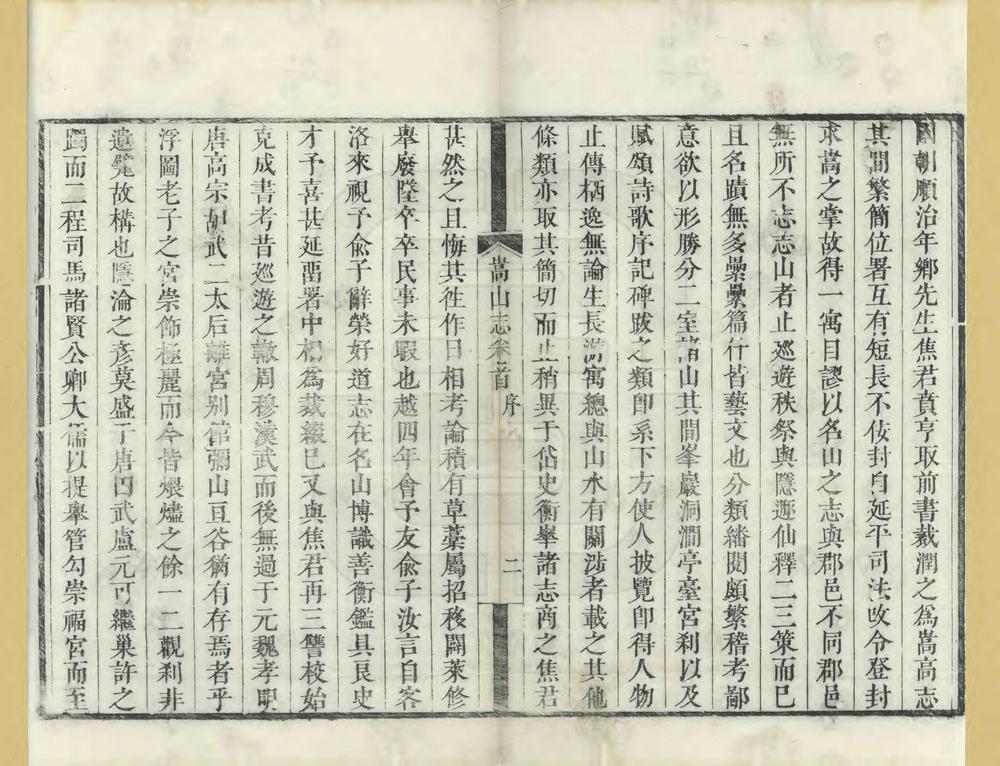 國朝順治年鄉先生焦君賁亨取前書裁潤之爲嵩高志
其間繁簡位署互有短長不佞封自延平司法改令登封
求嵩之掌故得一寓目謬以名山之志與郡邑不同郡邑
無所不志志山者止巡遊秩祭與隱遯仙釋二三策而已
且名蹟無多纍纍篇什皆藝文也分類繙閱頗繁稽考鄙
意欲以形勝分二室諸山其間峯巖洞澗亭臺宮刹以及
賦頌詩歌序記碑跋之類即系下方使人披覽即得人物
止傳栖逸無論生長游寓總與山水有關涉者載之其他
條類亦取其簡切而止稍異于岱史衡舉諸志商之焦君
嵩山志卷首 序 二
甚然之且悔其徃作日相考論積有草藁屬招移闢萊修
舉廢墜卒卒民事未暇也越四年會予友俞子汝言自客
洛來視予俞子辭榮好道志在名山博識善衡鑑具良史
才予喜甚延畱署中相爲裁綴已又與焦君再三讐校始
克成書考昔巡遊之轍周穆漢武而後無過于元魏孝明
唐高宗胡武二太后離宮別館彌山亘谷猶有存焉者乎
浮圖老子之宮崇飾極麗而今皆煨燼之餘一二觀刹非
遺甓故構也隱淪之彥莫盛于唐四武盧元可繼巢許之
躅而二程司馬諸賢公卿大儒以提舉管勾崇福宮而至